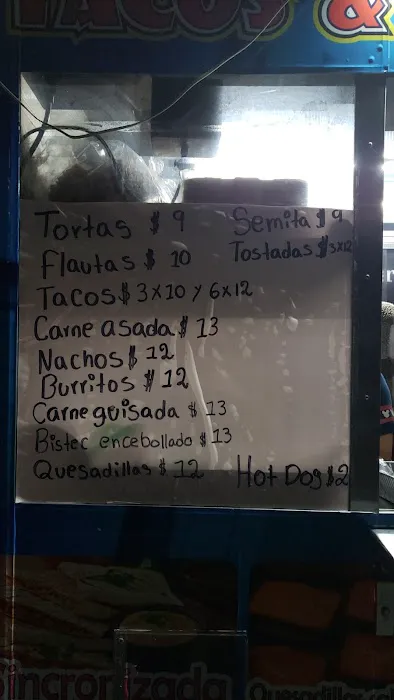 TACOS &
Tortas $ 9
Semita $ 9
Flautas $ 10
Tostadas $ 3x12
Tacos $ 3x10 y 6x12
Carne asada $ 13
Nachos $ 12
Burritos $ 12
Carne guisada $ 13
Bistec encebollado $ 13
Quesadillas $ 12
Hot Dog $2
Sincronizada
Quesadillas